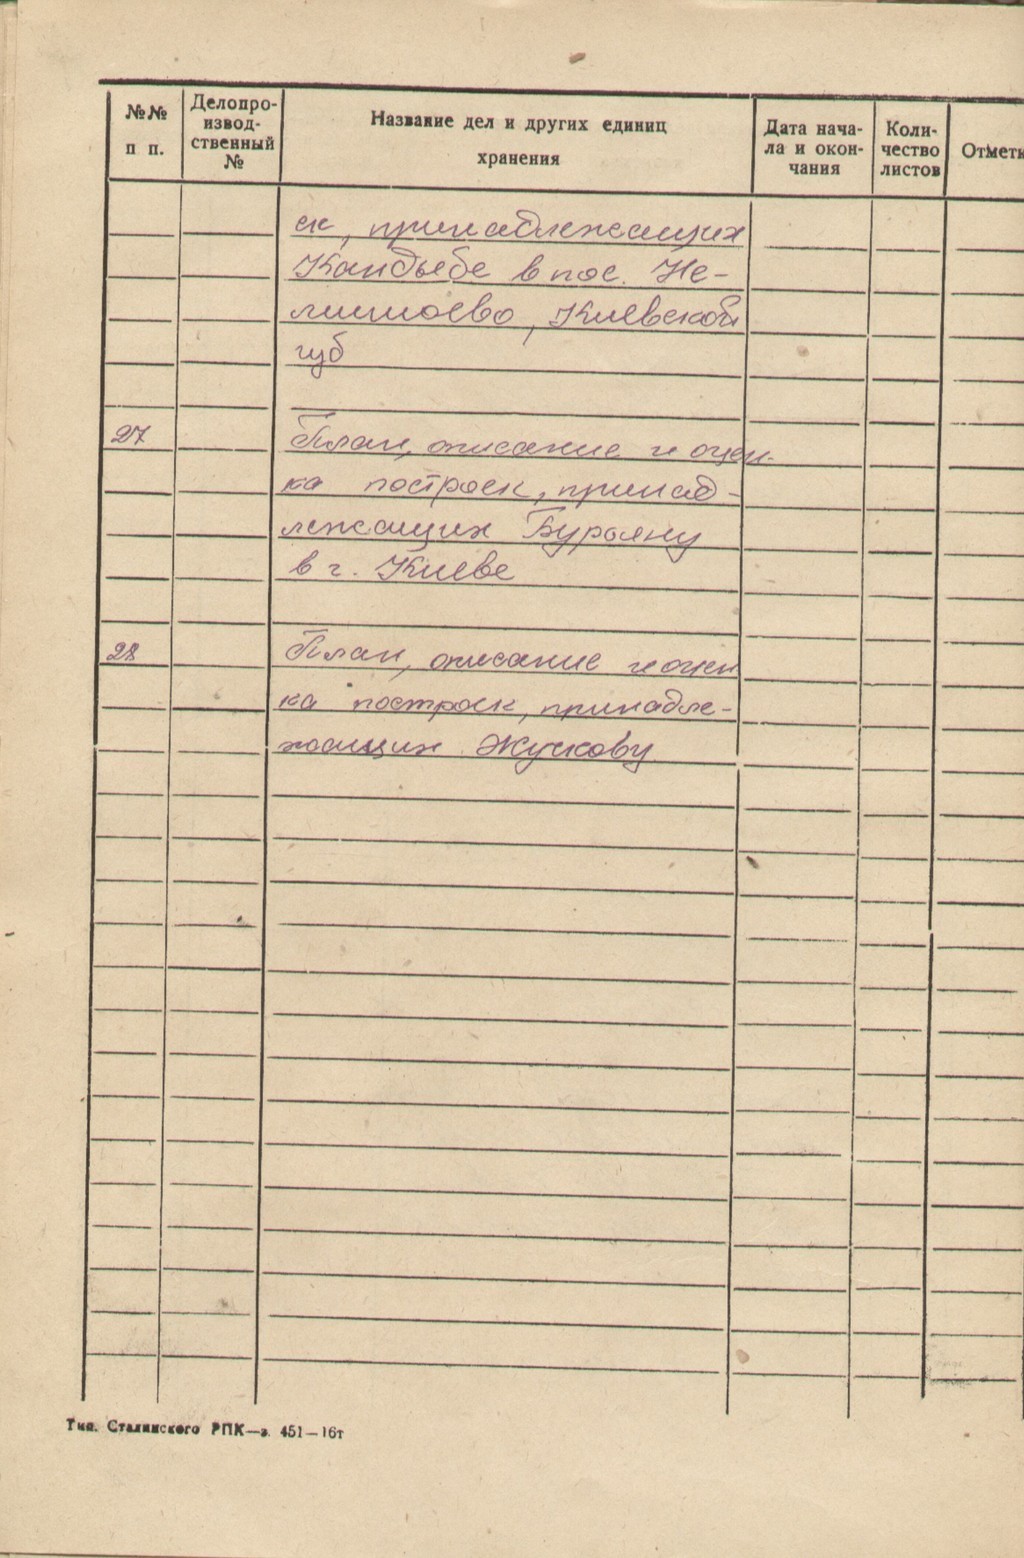 №№ п п.
Делопро-
извод-
ственный
№
Название дел и других единиц
хранения
Дата нача-
ла и окон-
чания
Коли-
чество
листов
Отметк
ек, принадлежащих
Кандыбе в пос. Не-
, Киевской
губ
27 План, описание и оцен-
ка построек, принад-
лежащих Бурьяну
в г. Киеве
28 План, описание и оцен
ка построек, принадле-
жащих Жускову
Тип. Сталинского РПК—з. 451—16т